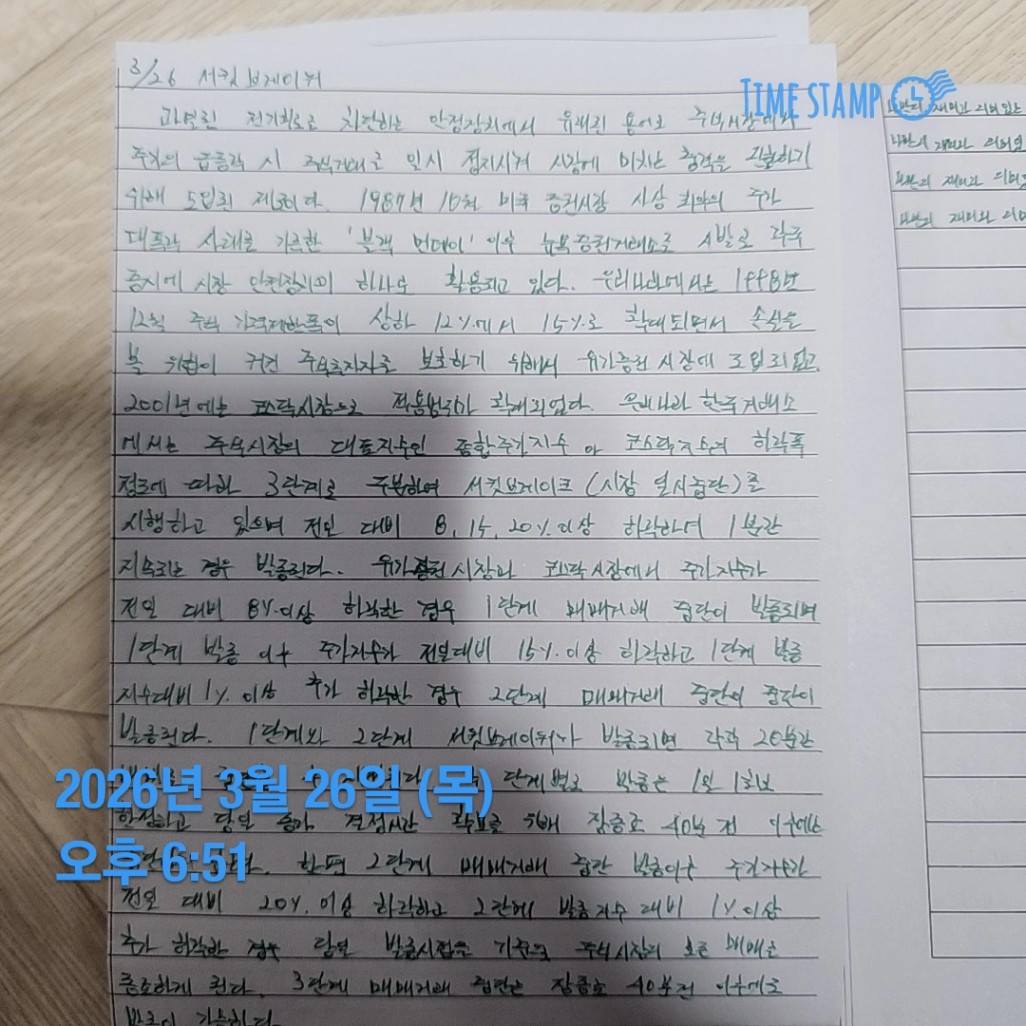 3/26 서킷브레이커
TIME STAMP
과열된 전기회로를 차단하는 안정장치에서 유래된 용어로 주식시장에서
주가의 급등락 시 주식거래를 일시 정지시켜 시장에 미치는 충격을 완화하기
위해 도입된 제도이다. 1987년 10월 미국 증권시장 사상 최악의 주가
대폭락 사태를 기록한 '블랙 먼데이' 이후 뉴욕증권거래소를 시발로 각국
증시에 시장 안전장치의 하나로 활용되고 있다. 우리나라에서는 1998년
12월 주식 가격제한폭이 상하 12%에서 15%로 확대되면서 손실을
볼 위험이 커진 주식투자자를 보호하기 위해서 유가증권시장에 도입되었고,
2001년에는 코스닥시장으로 적용범위가 확대되었다. 우리나라 한국거래소
에서는 주식시장의 대표지수인 종합주가지수 와 코스닥지수의 하락폭
정도에 따라 3단계로 구분하여 서킷브레이크 (시장 일시중단)를
시행하고 있으며 전일 대비 8, 15, 20% 이상 하락하여 1분간
지속되는 경우 발동된다. 유가증권시장과 코스닥시장에서 주가지수가
전일 대비 8% 이상 하락한 경우 1단계 매매거래 중단이 발동되며
1단계 발동 이후 주가지수가 전일대비 15% 이상 하락하고 1단계 발동
지수대비 1% 이상 추가 하락한 경우 2단계 매매거래 중단이 중단이
발동된다. 1단계와 2단계 서킷브레이커가 발동되면 각각 20분간
단계별로 발동은 1일 1회로
한정하고 당일 종가 결정시간 확보를 위해 장종료 40분 전 이후에는
한편 2단계 매매거래 중단 발동이후 주가지수가
전일 대비 20% 이상 하락하고 2단계 발동지수 대비 1% 이상
추가 하락한 경우 당일 발동시점을 기준으로 주식시장의 모든 매매를
종료하게 된다. 3단계 매매거래 중단은 장종료 40분전 이후에도
발동이 가능하다.
2026년 3월 26일 (목)
오후 6:51